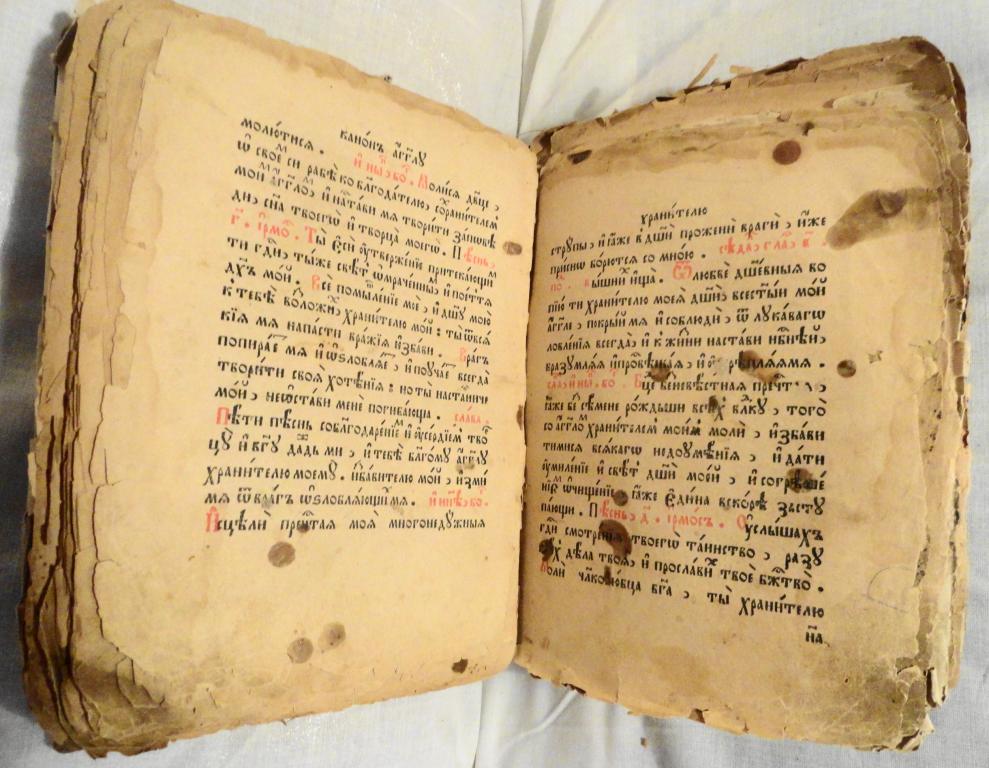 канѡ́нъ а҆́гг҃лꙋ
моли́тися. И҆ нн҃ѣ, бо҃. Моли́ся дв҃це,
ѿ свое́ си рабѣ̀ ко бл҃года́телю, со храни́телем
мои́м а҆́гг҃лом, и҆ наста́ви мя твори́ти за́повѣ
ди, сн҃а твоегѡ̀ и҆ творца̀ моегѡ̀. Пѣснь,
г҃. і҆рмо́с. Ты̀ є҆сѝ ᲂу҆твержде́ние притека́ющи
ти гд҃и, ты́же свѣ́т ѡ҆мраче́нным, и҆ пое́т тя
дх҃ъ мо́й. Всѐ помышле́ние моѐ, и҆ дш҃у мою̀
к тебѣ̀ возложи́х, храни́телю мо́й: ты̀ ѿ вся́
кия мя напа́сти вра́жия и҆зба́ви. Вра́гъ
попира́ет мя и҆ ѡ҆зло́бляет, и҆ поуча́ет всегда̀
твори́ти своя̀ хоте́ния: но ты̀ наста́вниче
мо́й, не ѡ҆ста́ви менѐ погиба́юща. сла́ва.
Пѣ́ти пѣ́снь со благодаре́нием и҆ ᲂу҆се́рдием тво
цу̀ и҆ бг҃у да́дь ми, и҆ тебѣ̀ бл҃го́му а҆́гг҃лу
храни́телю моему̀. и҆зба́вителю мо́й, и҆змѝ
мя ѿ вра́гъ ѡ҆зло́бляющих мя. и҆ нн҃ѣ, бо҃.
И҆сцѣлѝ пречи́стая моя̀ многонеду́жныя
храни́телю
стру́пы, и҆ я҆́же в дш҃ѝ прожени̏ врагѝ, и҆́же
при́сно бо́рются со мно́ю. сѣда́, гла́с, в҃.
по. вы́шних и҆ща̀. Ѿ любве̏ дш҃е́вныя во
пию́ ти храни́телю моея̀ дш҃ѝ, всест҃ы́й мо́й
а҆́гг҃ле, покры́й мя и҆ соблюдѝ, ѿ лука́вагѡ
ловле́ния всегда̀, и҆ к жи́зни наста́ви нбⷭ҇нѣй,
вразумля́я и҆ просвѣща́я, и҆ ᲂу҆крѣпля́я мя.
сла́, и҆ ны́, бо҃. Бц҃е безневѣ́стная преч҇та́я,
я҆́же без сѣ́мене ро́ждьши всѣ́х влⷣку, того̀
со а҆́гг҃лом храни́телем мои́м молѝ, и҆зба́ви
ти мися вся́кагѡ недоумѣ́ния, и҆ да́ти
ᲂу҆миле́ние и҆ свѣ́т дш҃ѝ мое́й, и҆ согрѣше́
нием ѡ҆чище́ние, я҆́же є҆ди́на вско́рѣ засту
па́ющи. Пѣснь, д҃. і҆рмо́съ. Услы́шахъ
гд҃и смотре́ния твоегѡ̀ та́инство, разу
мѣ́х дѣла̀ твоя̀, и҆ просла́вих твоѐ бж҃ство̀.
Молѝ чл҃колю́бца бг҃а, ты̀ храни́телю
на